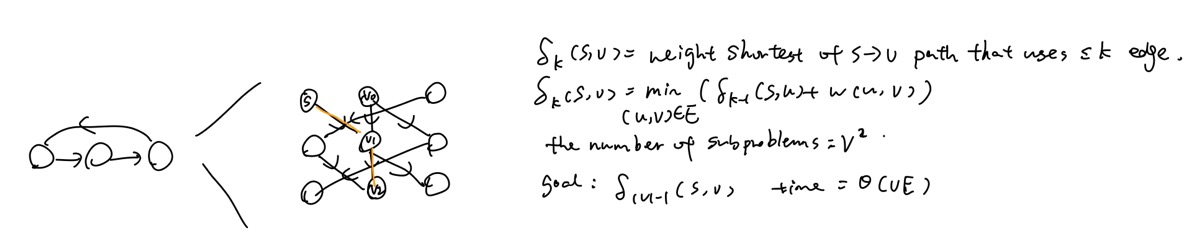 δ_k (s,v) = weight shortest of s→v path that uses ≤ k edge.
δ_k (s,v) = min (δ_{k-1} (s,u) + w (u,v))
(u,v)∈E
the number of subproblems = V².
goal: δ_{|V|-1} (s,v) time = θ(VE)
S V0
V1
V2